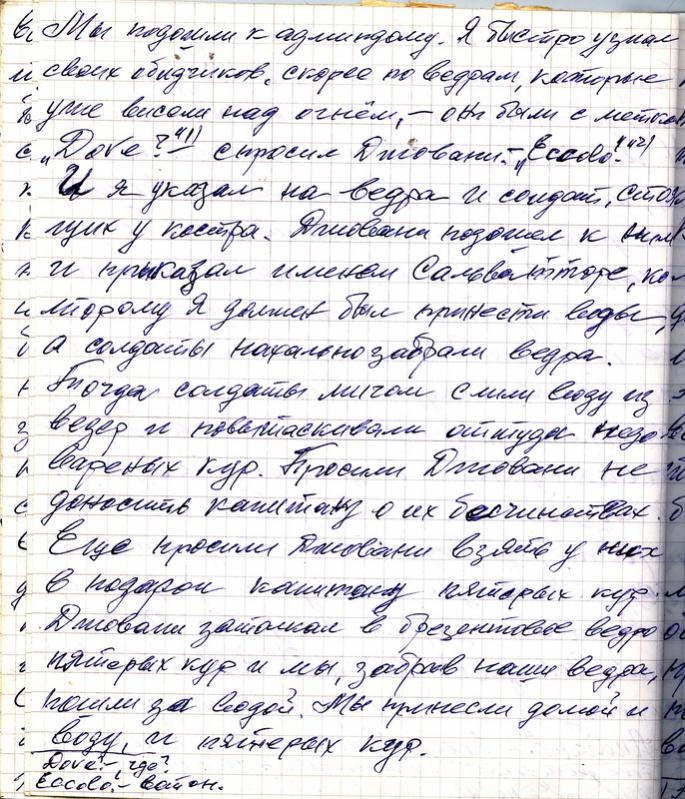 Мы подошли к админдому. Я быстро узнал
своих обидчиков, скорее по ведрам, которые
уже висели над огнём, – они были с метками
„Dove?"¹⁾ – спросил Джовани. – „Eccolo!"²⁾
И я указал на ведра и солдат, стоя-
щих у костра. Джовани подошел к ним
и приказал именем Сальватторе, ко-
торому я должен был принести воды,
а солдаты нахально забрали ведра.
Тогда солдаты мигом слили воду из
ведер и повытаскивали оттуда недо
вареных кур. Просили Джовани не
доносить капитану о их бесчинствах.
Еще просили Джовани взять у них
в подарок капитану пятерых кур.
Джовани затолкал в брезентовое ведро
пятерых кур и мы, забрав наши ведра,
пошли за водой. Мы принесли домой и
воду, и пятерых кур.
Dove? – где?
Eccolo! – вот он.